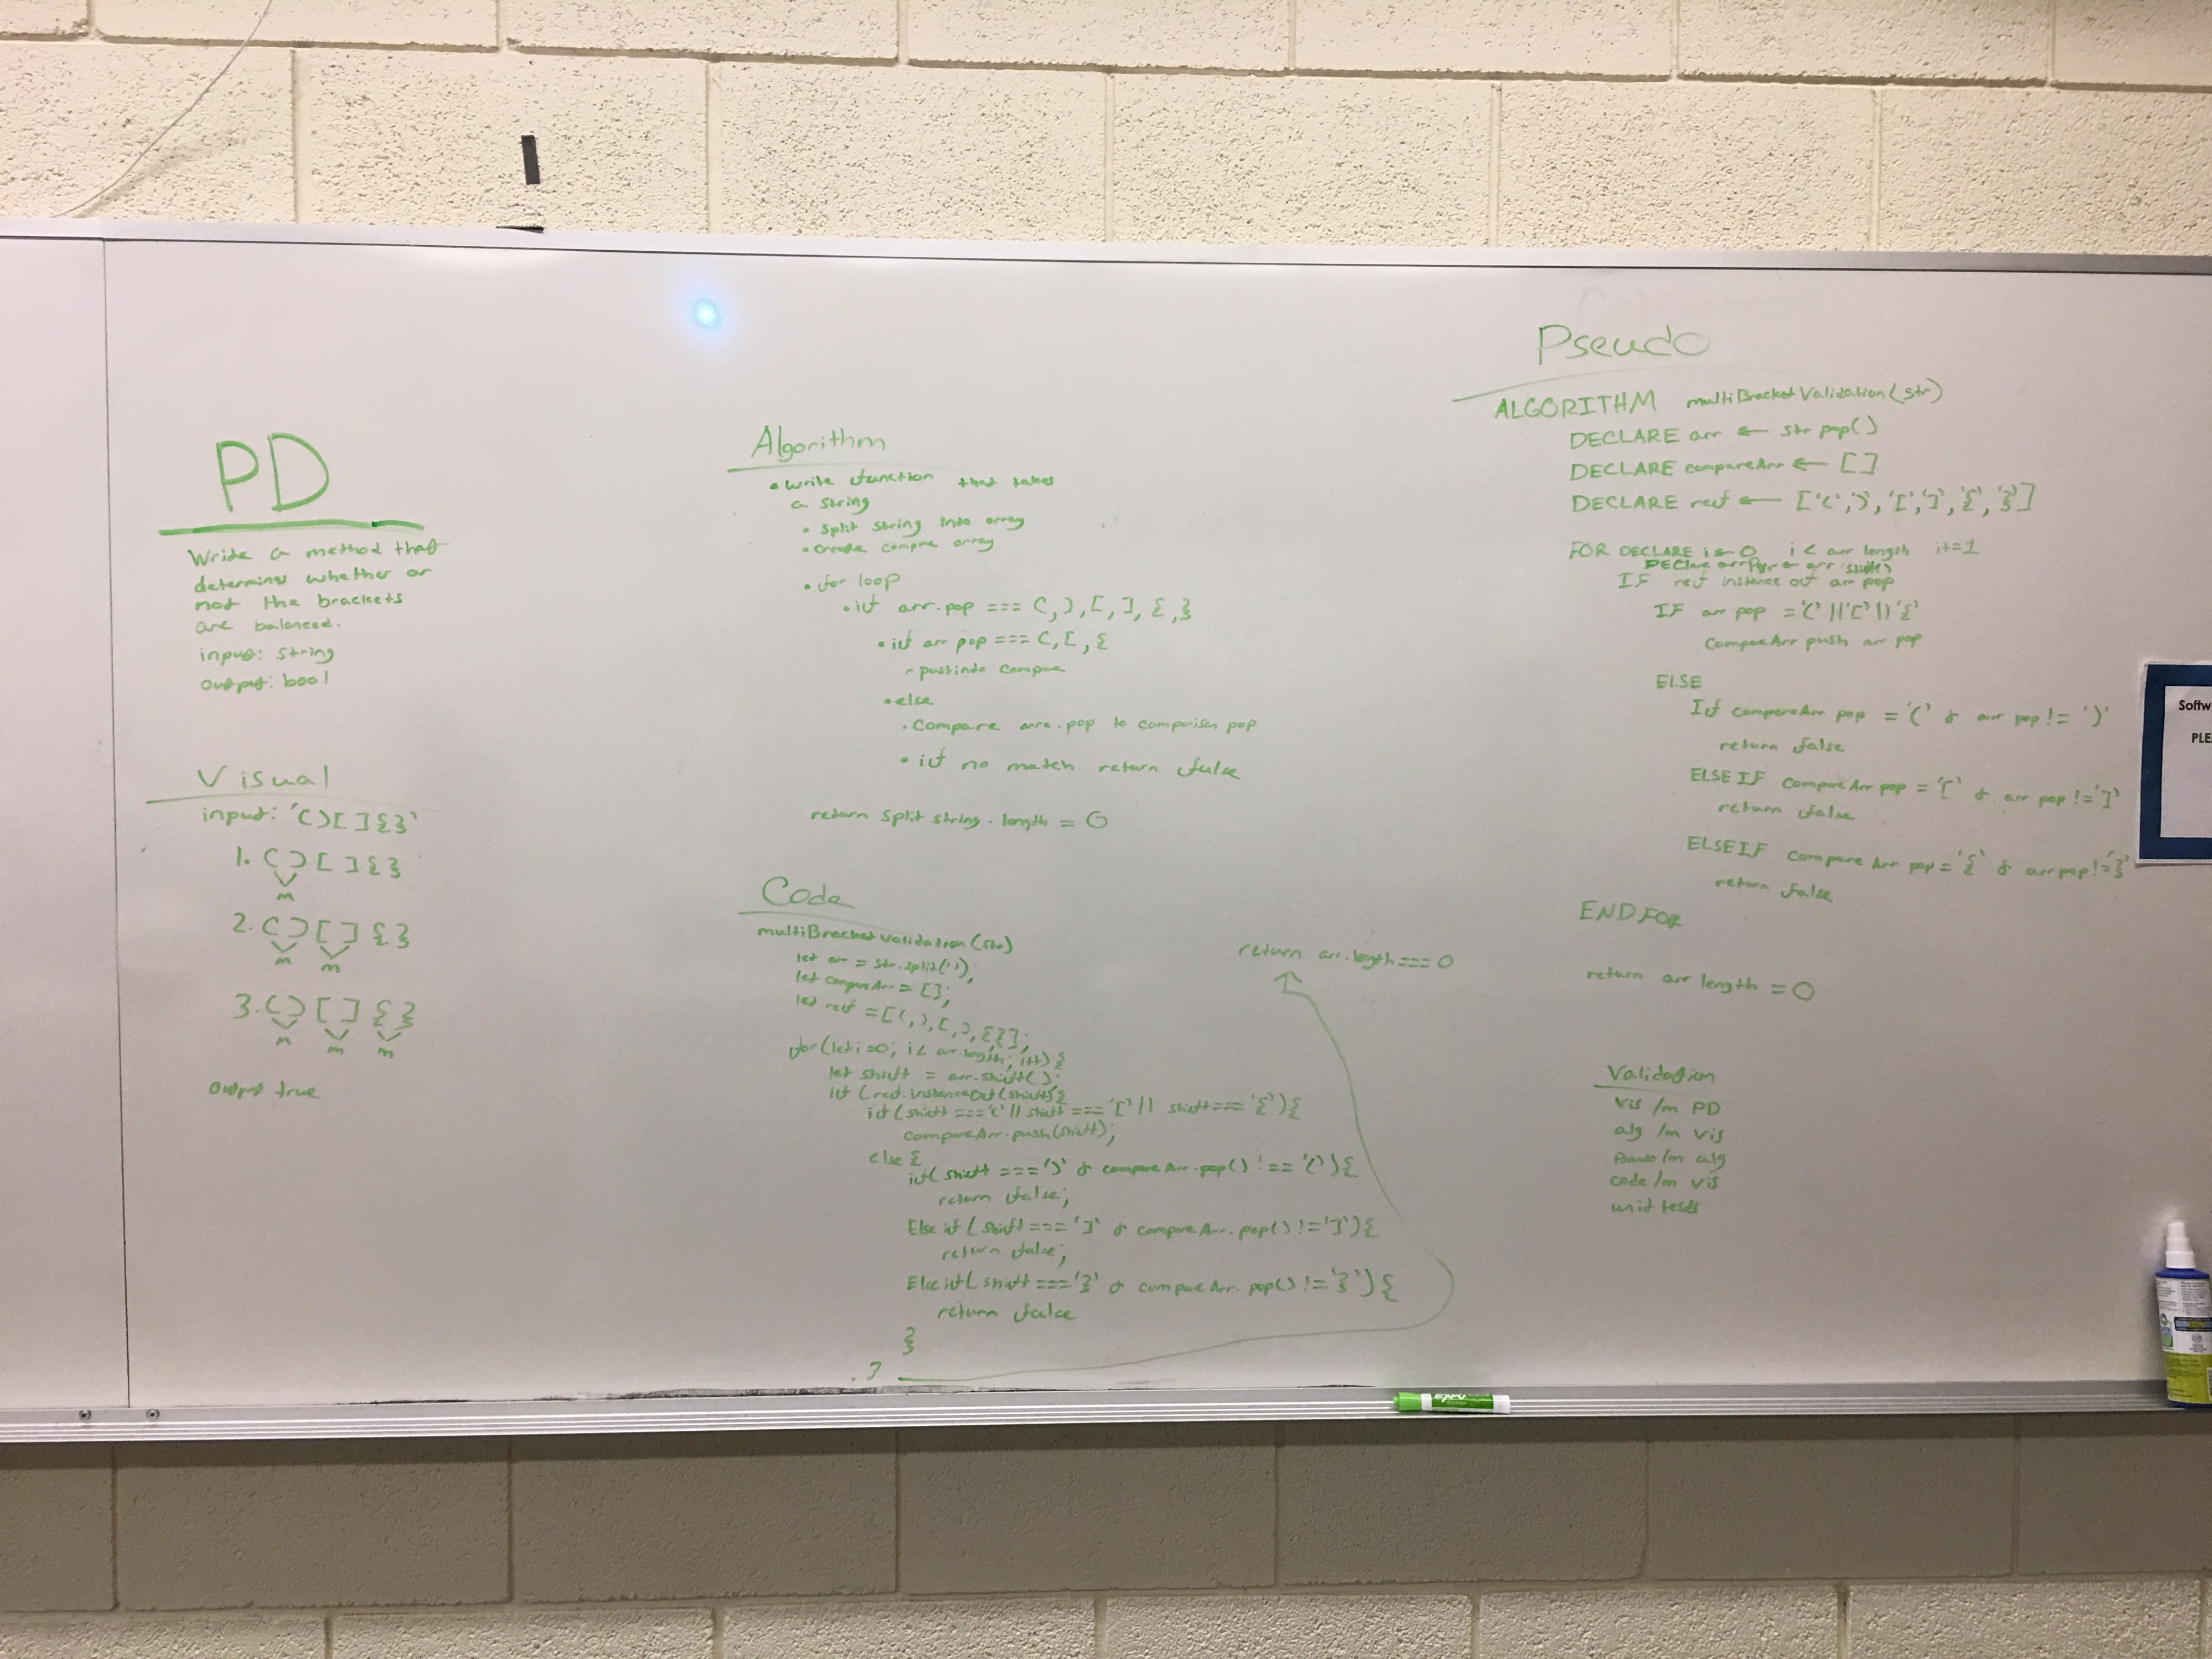 PD
Write a method that
determines whether or
not the brackets
are balanced.
input: string
output: bool
Visual
input: '()[]{}'
1. ()[]{}
m
2. ()[]{}
m m
3. ()[]{}
m m m
output true
Algorithm
• write function that takes
a string
• split string into array
• create compare array
• for loop
• if arr.pop === (,),[,],{,}
• if arr pop === (,[,{
- push into compare
• else
• compare arre.pop to comparison pop
• if no match return false
return split string.length = 0
Code
multiBracketValidation(str)
let arr = str.split('');
let compareArr = [];
let ref = [(,),[,],{}];
for(let i=0; i< arr.length; i++) {
let shift = arr.shift();
if (ref.instanceOf(shift){
if (shift === '(' || shift === '[' || shift === '{'){
compareArr.push(shift);
else {
if( shift === ')' & compareArr.pop() !== '('){
return false;
Else if ( shift === ']' & compareArr.pop() != ']'){
return false;
Else if( shift === '}' & compareArr.pop() != '}'){
return false
}
}
return arr.length === 0
Pseudo
ALGORITHM multiBracketValidation(str)
DECLARE arr ← str pop()
DECLARE compareArr ← []
DECLARE ref ← ['(',')','[',']','{','}']
FOR DECLARE i ← 0 i < arr length i+=1
DECLARE ← arr
IF ref instance of arr pop
IF arr pop = '(' || '[' || '{'
compareArr push arr pop
ELSE
If compareArr pop = '(' & arr pop != ')'
return false
ELSE IF compareArr pop = '[' & arr pop != ']'
return false
ELSEIF compareArr pop = '{' & arr pop != '}'
return false
END FOR
return arr length = 0
Validation
vis /m PD
alg /m vis
Pseudo /m alg
code /m vis
unit tests
Softw
PLE
EXPO